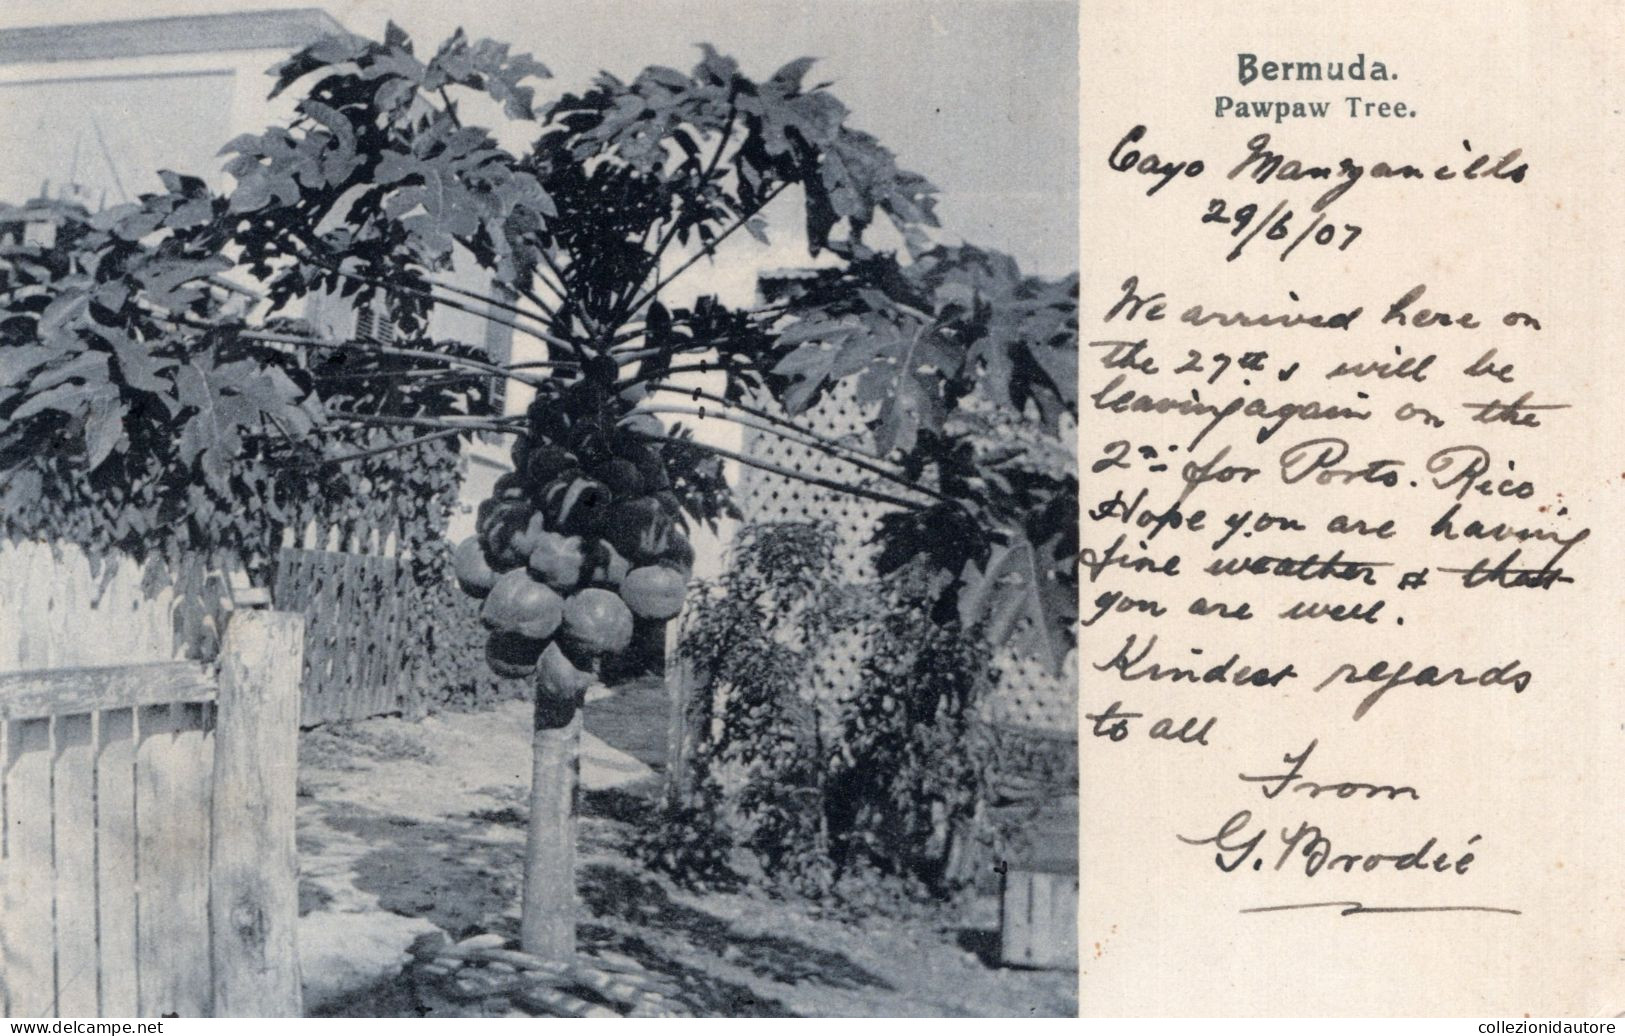 Bermuda.
Pawpaw Tree.
Cayo Manzanillo
29/6/07
We arrived here on
the 27th & will be
leaving again on the
2nd for Porto. Rico
Hope you are having
fine weather & that
you are well.
Kindest regards
to all
From
G. Brodie
www.delcampe.net
collezionidautore